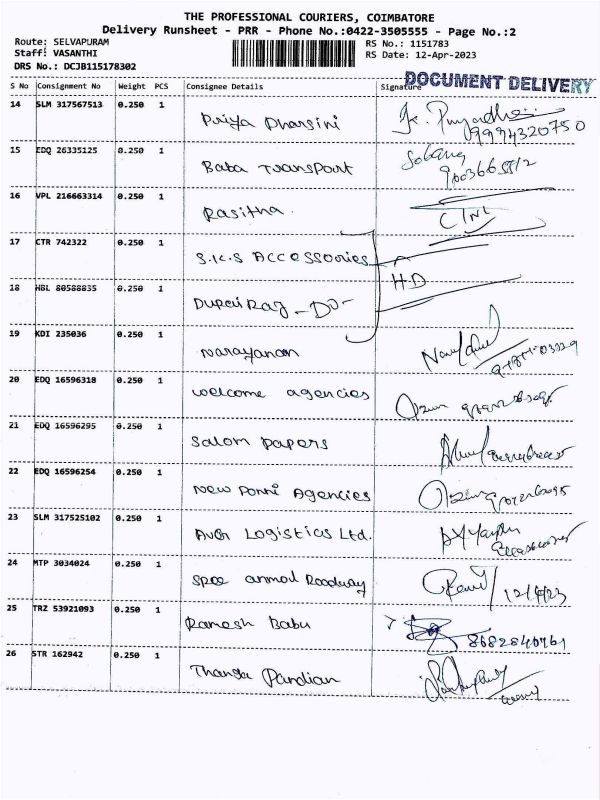 THE PROFESSIONAL COURIERS, COIMBATORE
Delivery Runsheet - PRR - Phone No.:0422-3505555 - Page No.:2
Route: SELVAPURAM
Staff: VASANTHI
DRS No.: DCJB115178302
RS No.: 1151783
RS Date: 12-Apr-2023
DOCUMENT DELIVERY
S No Consignment No Weight PCS Consignee Details Signature
14 SLM 317567513 0.250 1 Priya Dharsini 9994320750
15 EDQ 26335125 0.250 1 Baba Transport
16 VPL 216663314 0.250 1 Rasitha.
17 CTR 742322 0.250 1 S.K.S Accessories H.D
18 HBL 80588835 0.250 1 Durai Raj -Do-
19 KDI 235036 0.250 1 Narayanan
20 EDQ 16596318 0.250 1 Welcome agencies
21 EDQ 16596295 0.250 1 Salom Papers
22 EDQ 16596254 0.250 1 New Ponni Agencies
23 SLM 317525102 0.250 1 Logistics Ltd.
24 MTP 3034024 0.250 1 Sree anmol Roadway 12/4/23
25 TRZ 53921093 0.250 1 Ramesh Babu 8682840761
26 STR 162942 0.250 1 Thanga Pandian